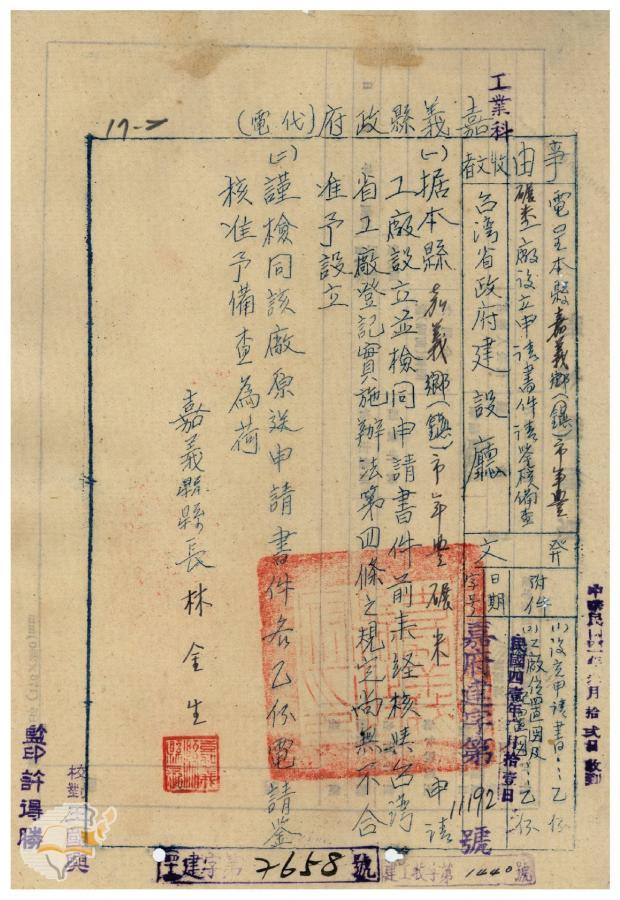 工業科
嘉義縣政府(代電)
17-7
事由
電呈本縣嘉義鄉(鎮)市年豐
碾米工廠設立申請書件請鑒核備查
收文者
台灣省政府建設廳
附件
(1)設立申請書:乙份
(2)工廠位置圖及
乙份
發文
日期
民國四壹年 月拾壹日
字号
嘉府建字第11192號
(一)据本縣嘉義鄉(鎮)市年豐碾米 申請
工廠設立並檢同申請書件前未経核與台湾
省工廠登記實施辦法第四條之規定尚無不合
准予設立
(二)謹檢同該廠原送申請書件各乙份電請鉴
核准予備查為荷
嘉義縣縣長林金生
監印許得勝
校對 國興
建字第7658號
建工技字第1440號